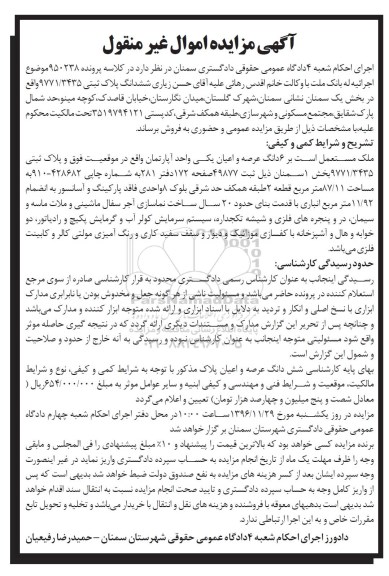 آگهی مزایده اموال غیر منقول
اجرای احکام شعبه ۴دادگاه عمومی حقوقی دادگستری سمنان در نظر دارد در کلاسه پرونده ۹۵۰۲۳۸موضوع
اجرائیه له بانک ملت با وکالت خانم اقدس رهائی علیه آقای حسن زیاری ششدانگ پلاک ثبتی ۹۷۷۱/۳۴۳۵واقع
در بخش یک سمنان نشانی سمنان،شهرک گلستان،میدان نگارستان،خیابان قاصدک،کوچه مینو،حد شمال
پارک شقایق،مجتمع مسکونی و شهرسازی،طبقه همکف شرقی،کدپستی ۳۵۱۹۷۹۴۱۲۱تحت مالکیت محکوم
علیه،با مشخصات ذیل از طریق مزایده عمومی و حضوری به فروش برساند.
تشریح و شرایط کمی و کیفی:
ملک مستعمل است بر ۶دانگ عرصه و اعیان یکی واحد آپارتمان واقع در موقعیت فوق و پلاک ثبتی
۹۷۷۱/۳۴۳۵بخش ۱سمنان ذیل ثبت ۴۹۸۷۷صفحه ۱۷۲دفتر ۲۸۱به شماره چاپی ۴۲۸۶۸۲-۹۱۰به
مساحت ۸۷/۱۱متر مربع قطعه ۲طبقه همکف حد شرقی بلوک ۸واحدی فاقد پارکینگ و آسانسور به انضمام
۱۱/۹۲متر مربع انباری با قدمت بنای حدود ۲۰ سال ساخت نماسازی آجر سفال ماشینی و ملات ماسه و
سیمان، در و پنجره های فلزی و شیشه تکجداره، سیستم سرمایش کولر آب و گرمایش پکیج و رادیاتور، دو
خوابه و هال و آشپزخانه با کفسازی موزائیک و دیوار و سقف سفید کاری و رنگ آمیزی مولتی کالر و کابینت
فلزی می‌باشد.
حدود رسیدگی کارشناسی:
رسیدگی اینجانب به عنوان کارشناس رسمی دادگستری محدود به قرار کارشناسی صادره از سوی مرجع
استعلام کننده در پرونده حاضر می‌باشد و مسئولیت ناشی از هر گونه جعل و مخدوش بودن یا نابرابری مدارک
ابرازی با نسخ اصلی و انکار و تردید به دلایل با اسناد ابرازی و ارائه شده متوجه ابراز کننده و مدارک می‌باشد
و چنانچه پس از تحریر این گزارش مدارک و مستندات دیگری ارائه گردد که در نتیجه گیری حاصله موثر
واقع شود مسئولیتی متوجه اینجانب به عنوان کارشناس نبوده و رسیدگی به آنه خارج از حدود و صلاحیت
و شمول این گزارش است.
بهای پایه کارشناسی شش دانگ عرصه و اعیان پلاک مذکور با توجه به شرایط کمی و کیفی، نوع و شرایط
مالکیت، موقعیت و شرایط فنی و مهندسی و کیفی ابنیه و سایر عوامل موثر به مبلغ ۶۵۴/۰۰۰/۰۰۰ریال (
معادل شصت و پنج میلیون و چهارصد هزار تومان) تعیین و اعلام می‌گردد
مزایده در روز یکشنبه مورخ ۱۳۹۶/۱۱/۲۹ساعت ۱۰:۰۰در محل دفتر اجرای احکام شعبه چهارم دادگاه
عمومی حقوقی دادگستری شهرستان سمنان بر گزار خواهد شد
برنده مزایده کسی خواهد بود که بالاترین قیمت را پیشنهاد و ۱۰٪ مبلغ پیشنهادی را فی المجلس و مابقی
وجه را ظرف مهلت یک ماه از تاریخ انجام مزایده به حساب سپرده دادگستری واریز نماید در غیر اینصورت
وجه سپرده ایشان بعد از کسر هزینه های مزایده به نفع صندوق دولت ضبط خواهد شد بدیهی است که پس
از واریز کامل وجه به حساب سپرده دادگستری و تایید صحت انجام مزایده نسبت به انتقال سند اقدام خواهد
شد بدیهی است بدهیهای معوقه با فروشنده و هزینه های نقل و انتقال با خریدار می‌باشد و تخلیه و تحویل تابع
مقررات خاص و به این اجرا ارتباطی ندارد.
دادورز اجرای احکام شعبه ۴دادگاه عمومی حقوقی شهرستان سمنان – حمیدرضا رفیعیان